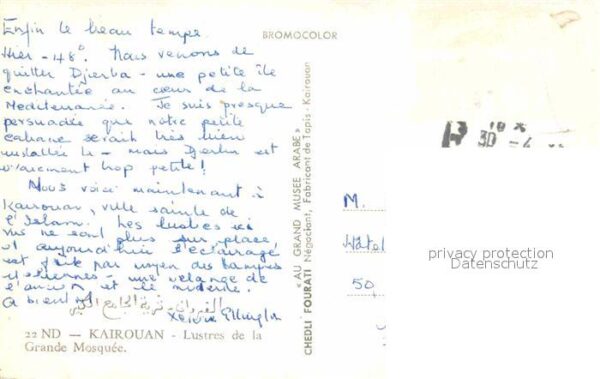 Enfin le beau temps.
Hier - 48°. Nous venons de
quitter Djerba - une petite île
enchantée au cœur de la
Mediterranée. Je suis presque
persuadée que notre petite
cabane serait très bien
installée là - mais Djerba est
vraiment trop petite!
Nous voici maintenant à
Kairouan, ville sainte de
l'Islam. Les lustres ici
vus ne sont plus sur place,
et aujourd'hui l'éclairage
est fait par moyen des lampes
- une mélange de
l'ancien et le moderne.
A bientôt
القيروان - ثرية الجامع الكبير
22 ND — KAIROUAN - Lustres de la
Grande Mosquée.
BROMOCOLOR
« AU GRAND MUSEE ARABE »
CHEDLI FOURATI Négociant, Fabricant de tapis - Kairouan
R 30 - 4
M.
Hôtel
50,
privacy protection
Datenschutz